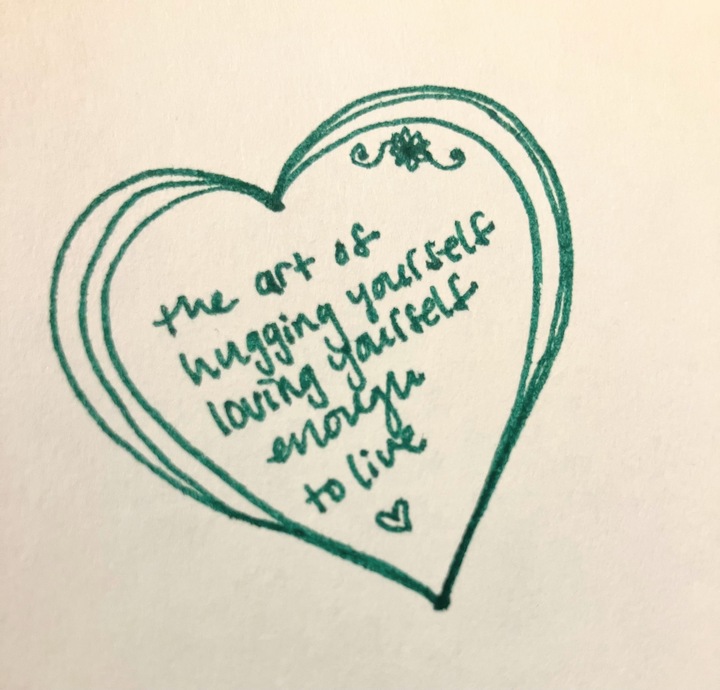 the art of
hugging yourself
loving yourself
enough
to live